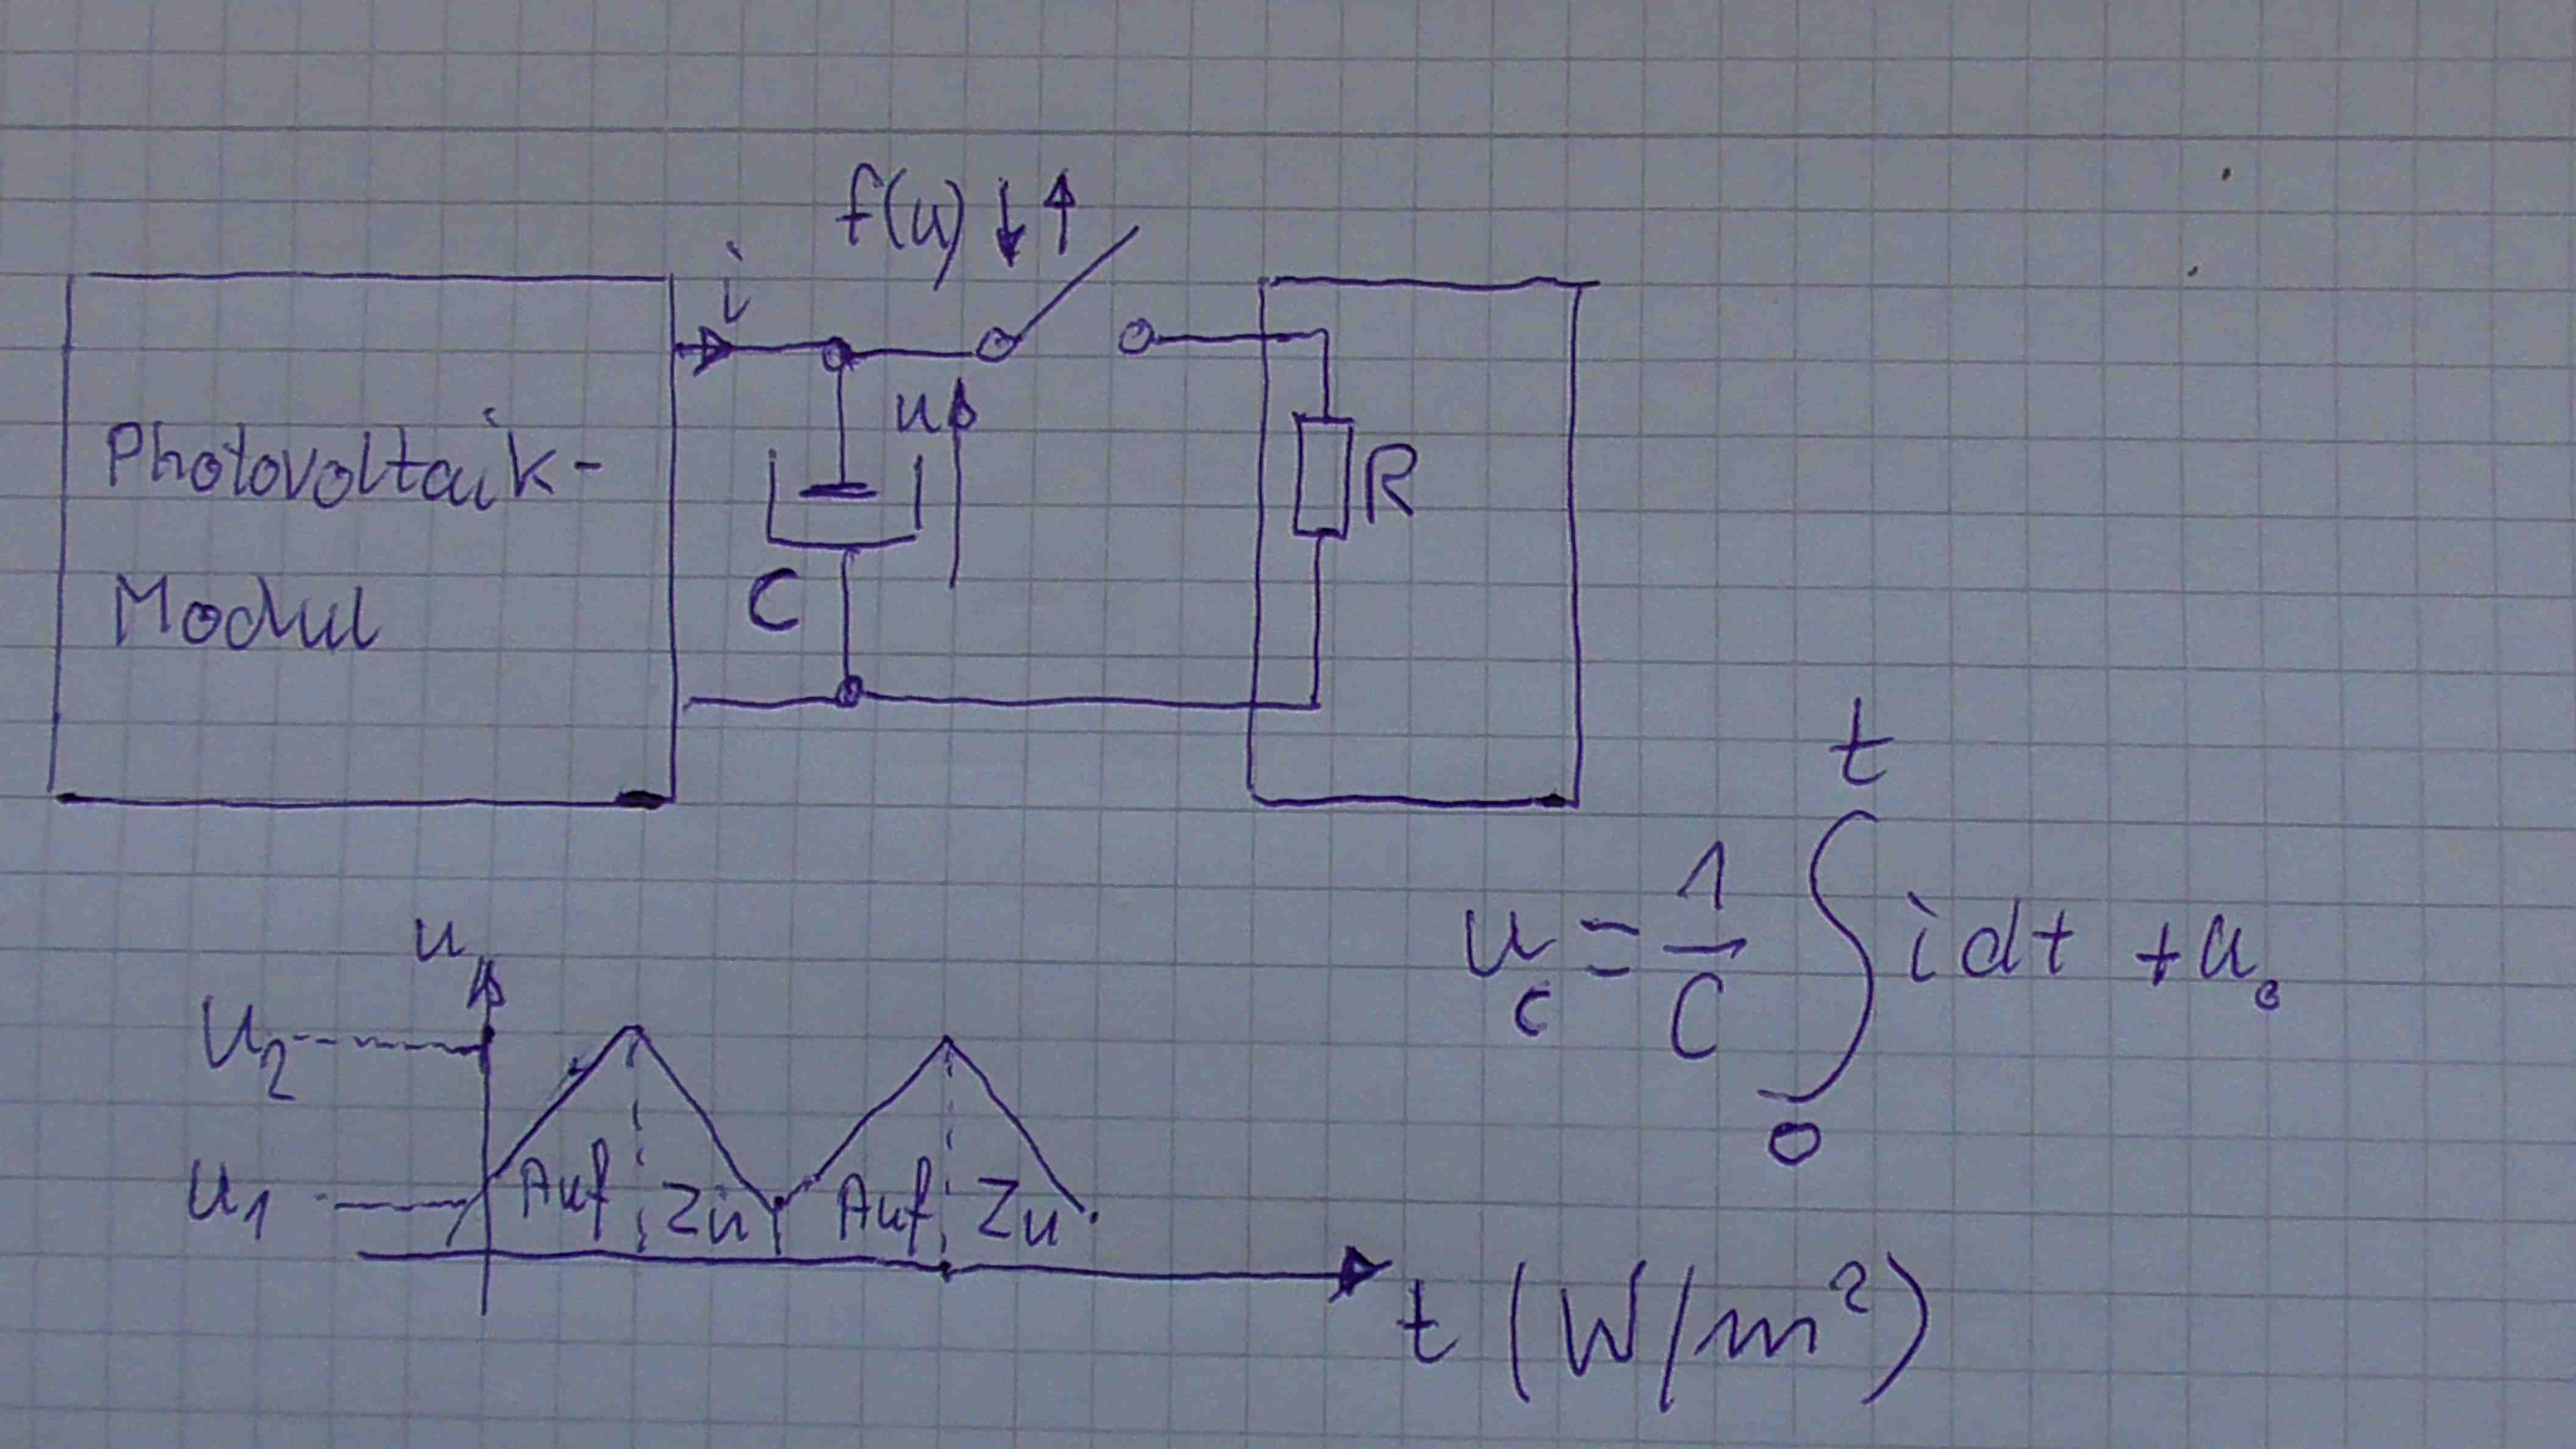 f(u) ↓ ↑
i
Photovoltaik-
Modul
u
C
R
u_c = 1/C ∫_0^t i dt + u_0
u
U2
u1
Auf Zu Auf Zu
t (W/m²)